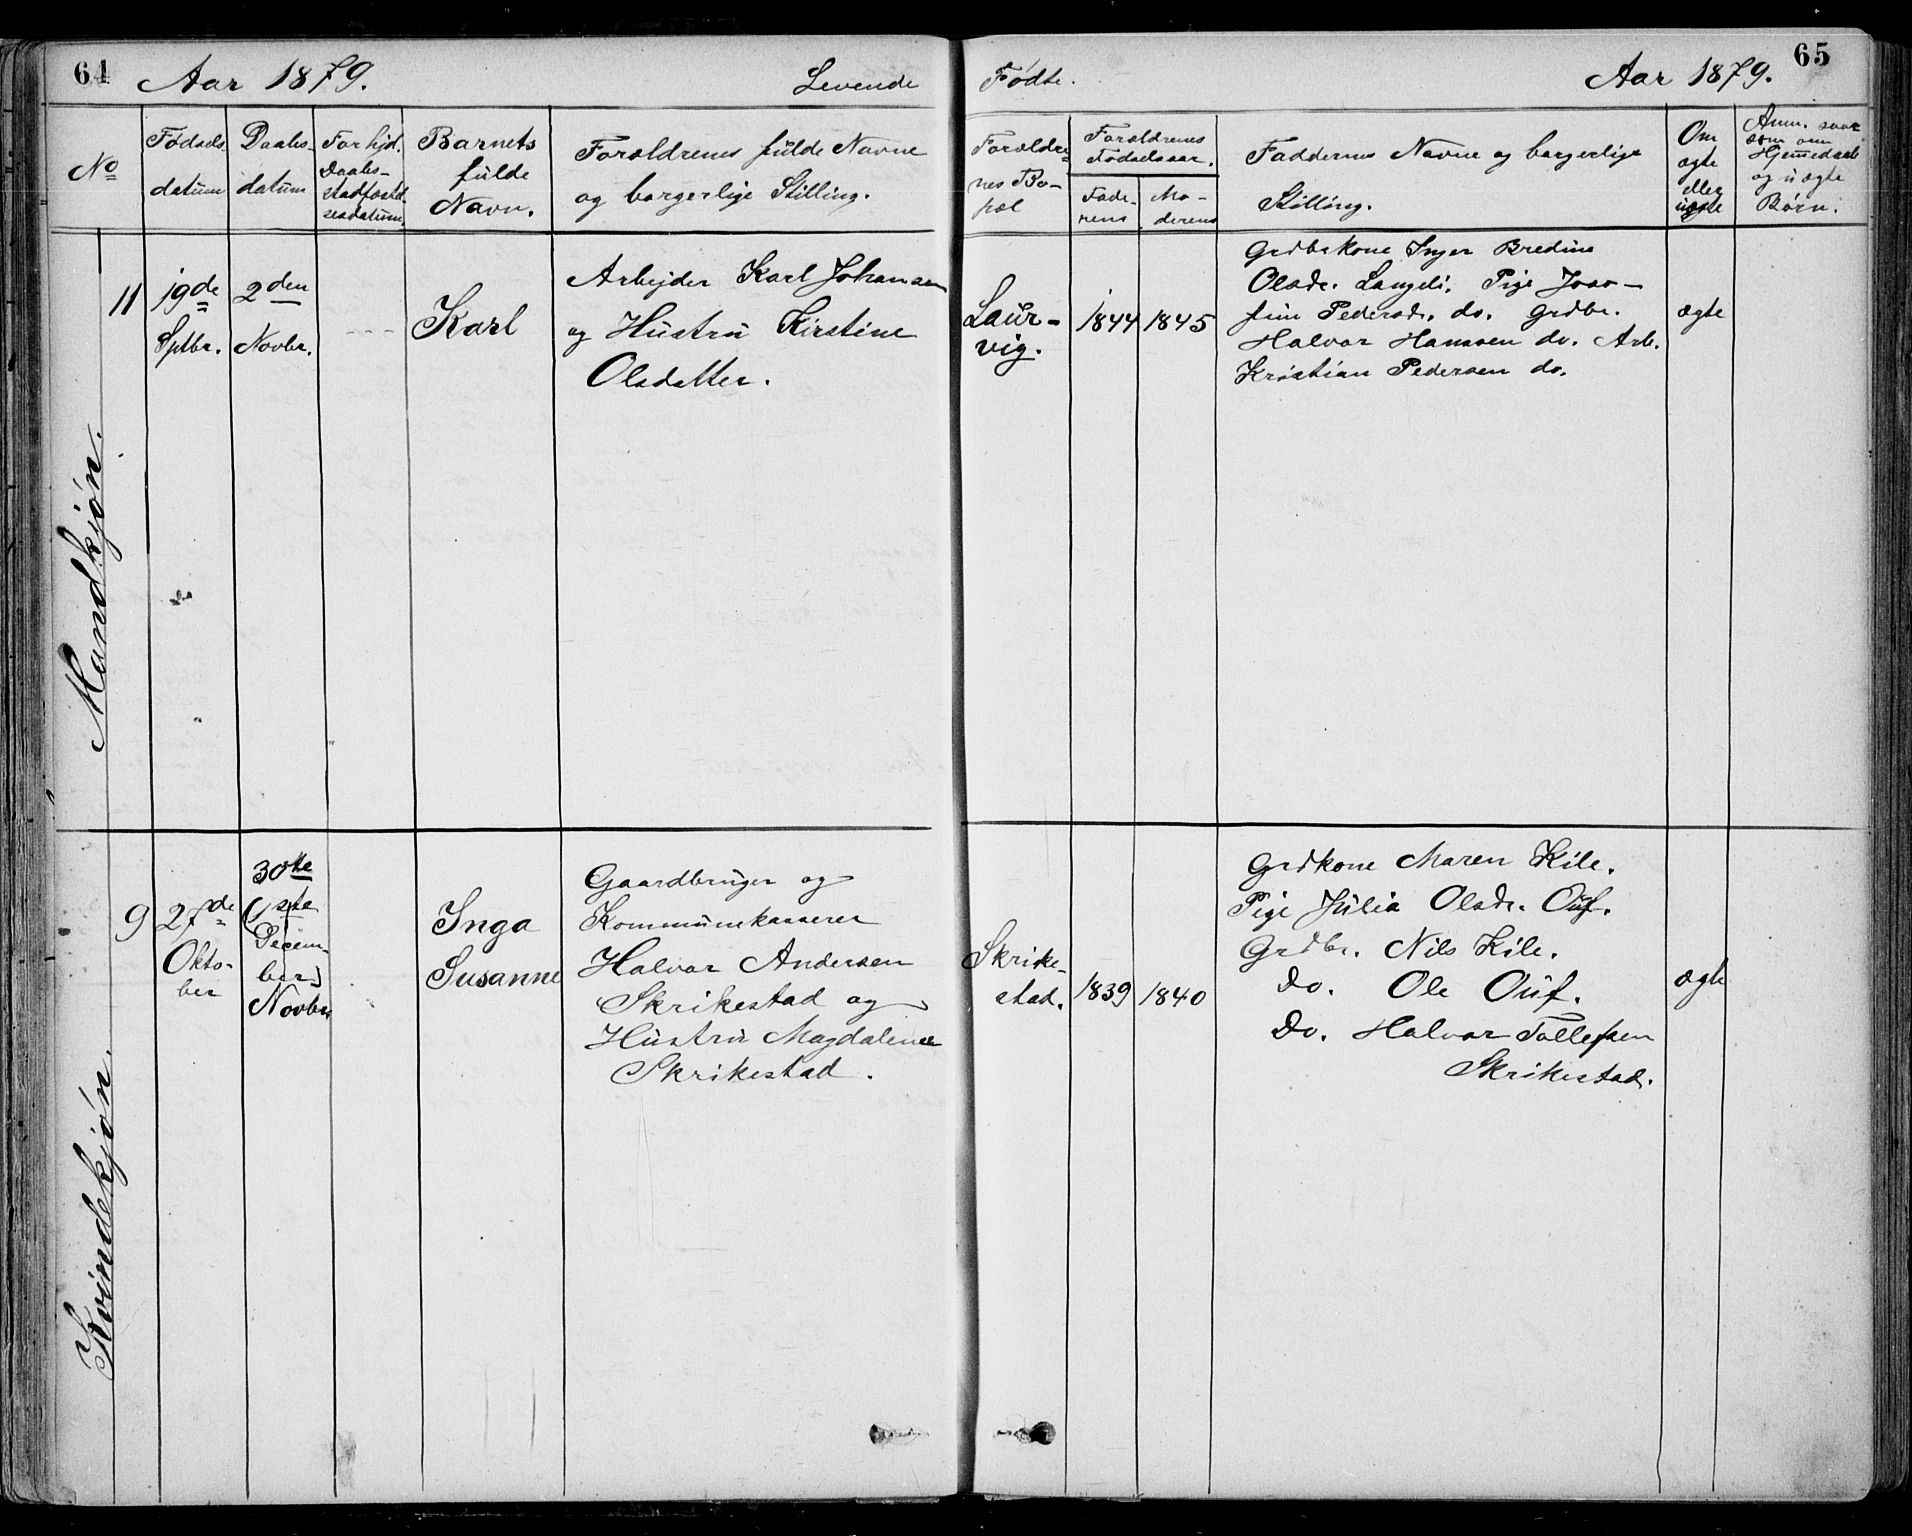 64
Aar 1879.
Levende
Fødte.
Aar 1879.
65
No
Fødsels
datum
Daabs-
datum
Forhjd.
Daabs-
stadfæstel
sesdatum.
Barnets
fulde
Navn.
Forældrenes fulde Navne
og borgerlige Stilling.
Forældre-
nes Bo-
pæl
Forældrenes
Fødselsaar.
Fade-
rens
Mo-
derens
Faddernes Navne og borgerlige
Stilling.
Om
ægte
eller
uægte
Anm. saa
som om
Hjemmedaab
og uægte
Børn.
Mandkjøn.
11
19de
Sptbr.
2den
Novbr.
Karl
Arbejder Karl Johansen
og Hustru Kirstine
Olsdatter.
Laur-
vig.
1844
1845
Grdbrkone Inger Bredine
Olsdr. Langeli. Pige Jose-
fine Pedersd. do. Grdbr.
Halvor Hanssen do. Arb.
Kristian Pedersen do.
ægte
Kvindekjøn.
9
27de
Okto-
ber
30te
(1ste
Decem-
ber)
Novbr.
Inga
Susanne
Gaardbruger og
Kommunekasserer
Halvor Andersen
Skrikestad og
Hustru Magdalene
Skrikestad.
Skrike-
stad.
1839
1840
Grdkone Maren Kile.
Pige Julia Olsdr. Ouf.
Grdbr. Nils Kile.
Do. Ole Ouf.
Do. Halvor Tollefsen
Skrikestad.
ægte